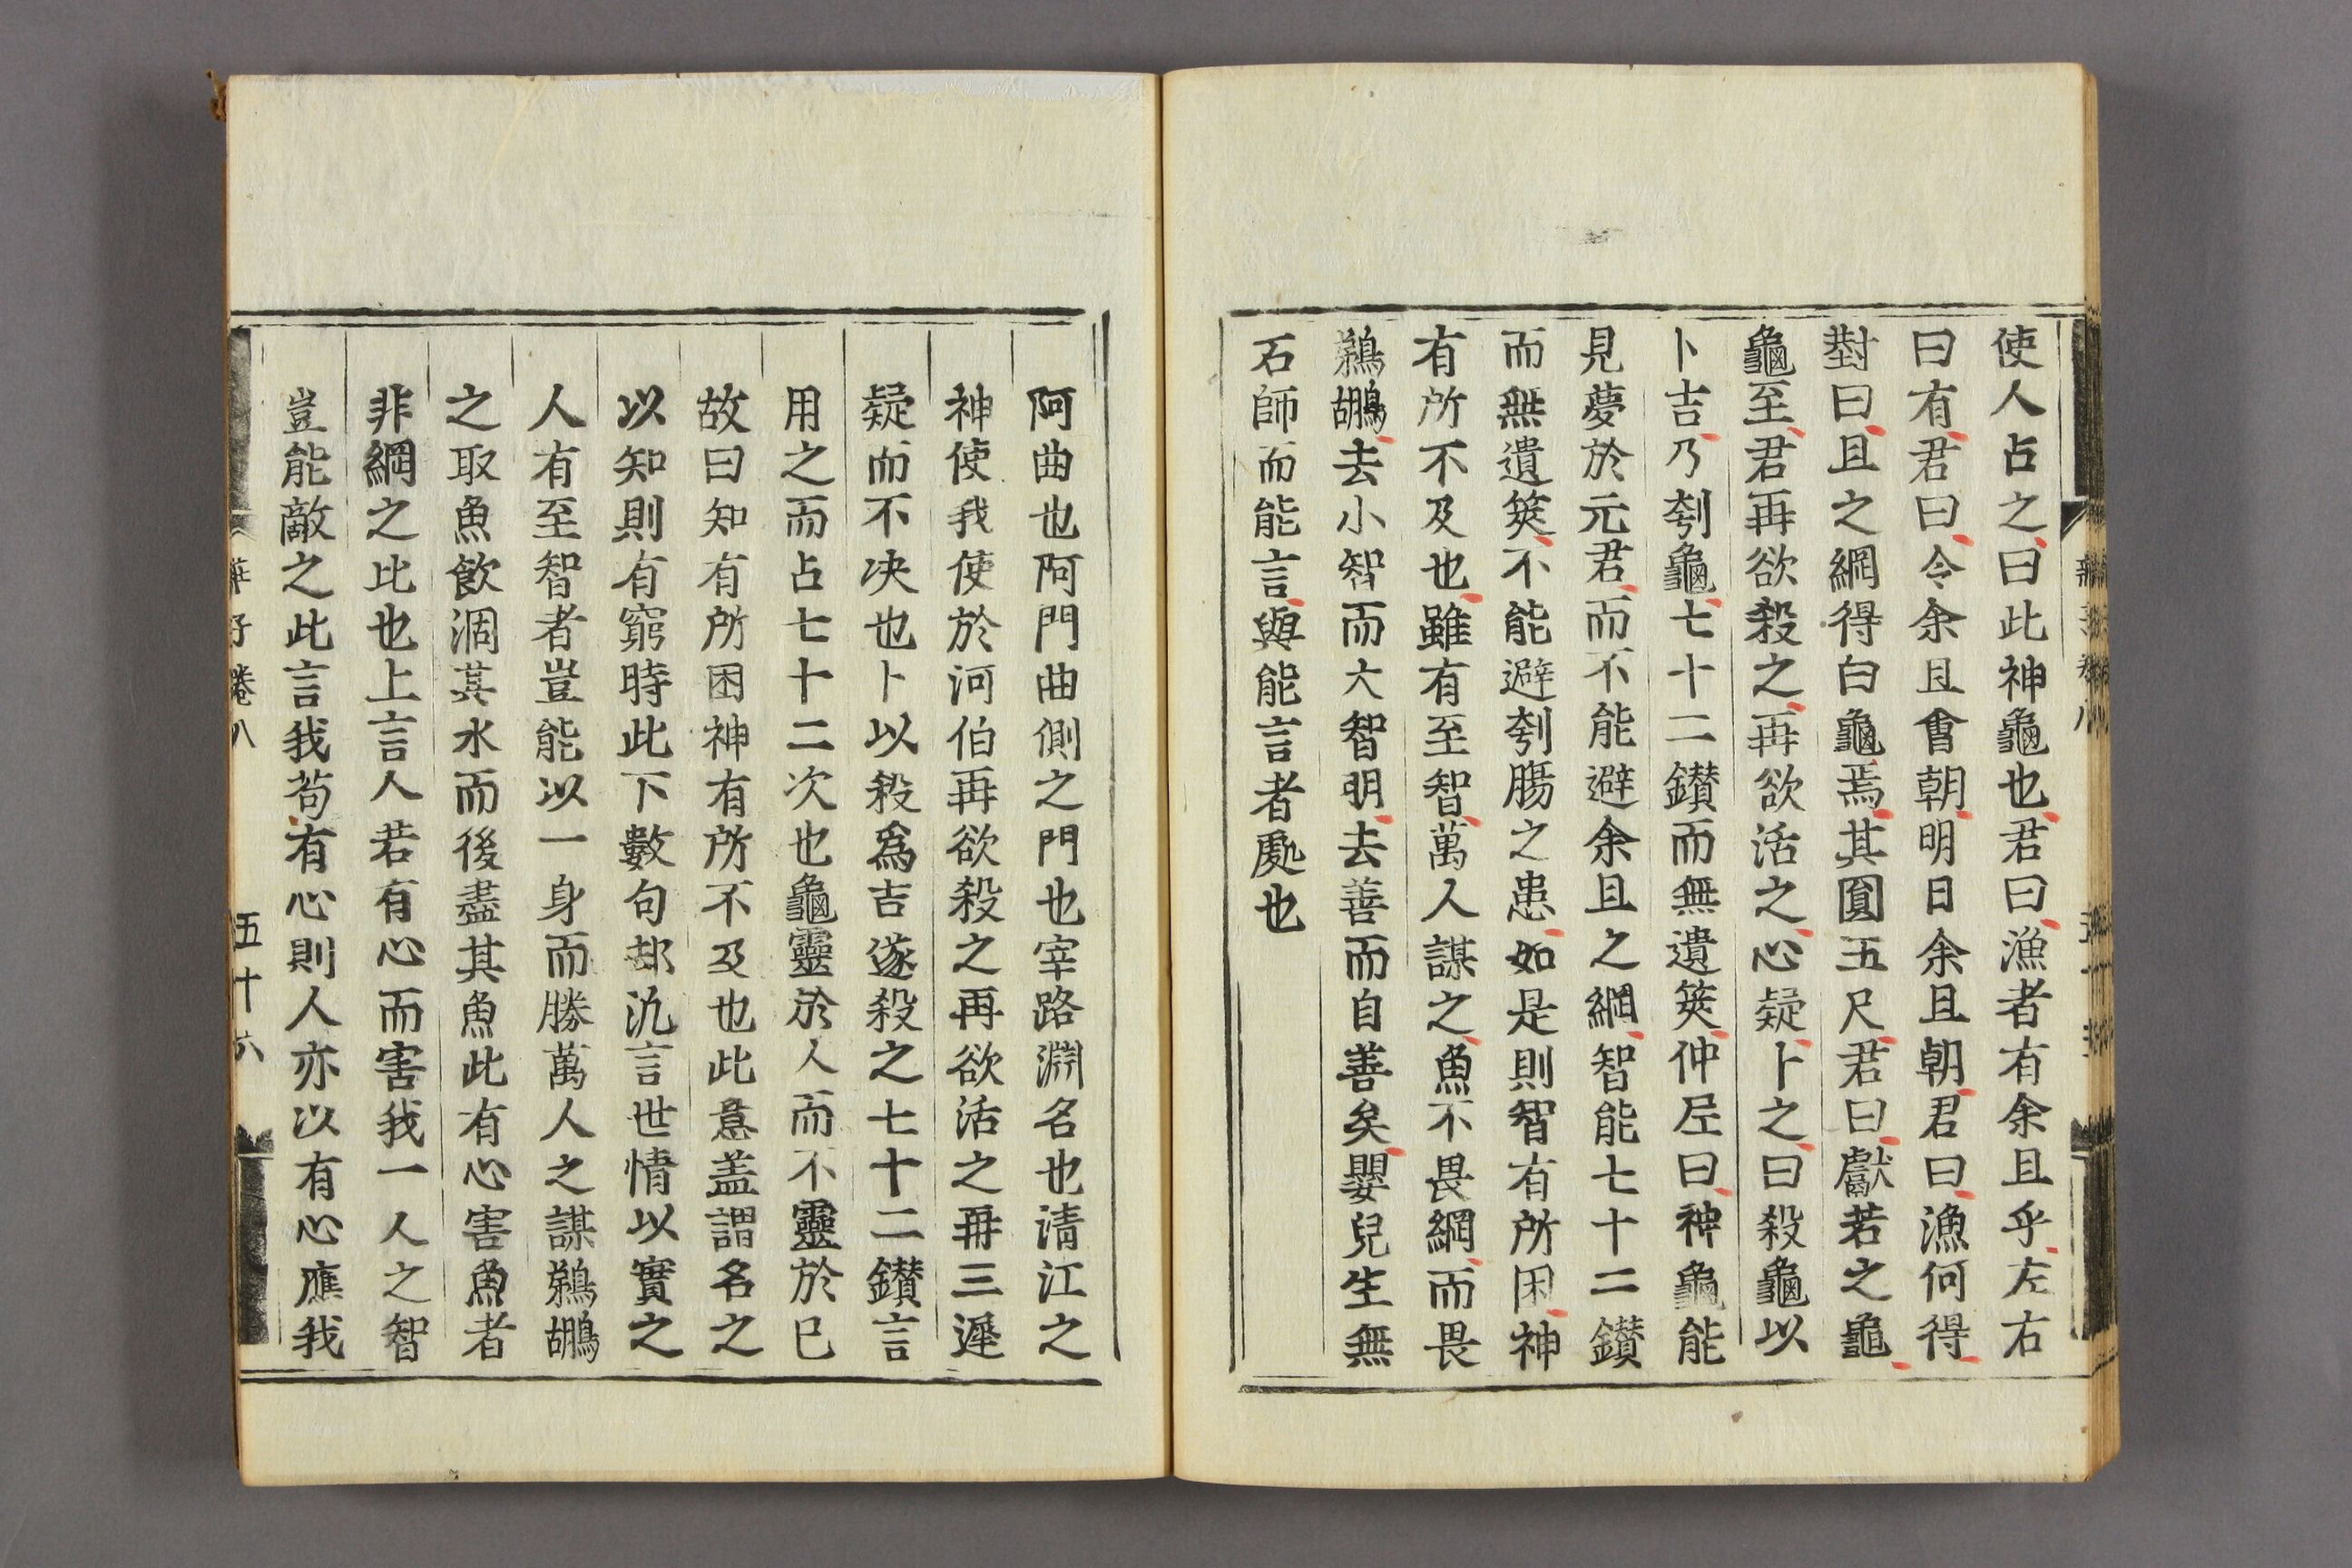 使人占之曰此神龜也君曰漁者有余且乎左右
曰有君曰令余且會朝明日余且朝君曰漁何得
對曰且之網得白龜焉其圓五尺君曰獻若之龜
龜至君再欲殺之再欲活之心疑卜之曰殺龜以
卜吉乃刳龜七十二鑚而無遺筴仲尼曰神龜能
見夢於元君而不能避余且之網智能七十二鑚
而無遺筴不能避刳膓之患如是則智有所困神
有所不及也雖有至智萬人謀之魚不畏網而畏
鵜鶘去小智而大智明去善而自善矣嬰兒生無
石師而能言與能言者處也
阿曲也阿門曲側之門也宰路淵名也清江之
神使我使於河伯再欲殺之再欲活之再三遲
疑而不决也卜以殺爲吉遂殺之七十二鑚言
用之而占七十二次也龜靈於人而不靈於已
故曰知有所困神有所不及也此意盖謂名之
以知則有窮時此下數句却汎言世情以實之
人有至智者豈能以一身而勝萬人之謀鵜鶘
之取魚飲涸其水而後盡其魚此有心害魚者
非網之比也上言人若有心而害我一人之智
豈能敵之此言我苟有心則人亦以有心應我
莊子卷八 五十六